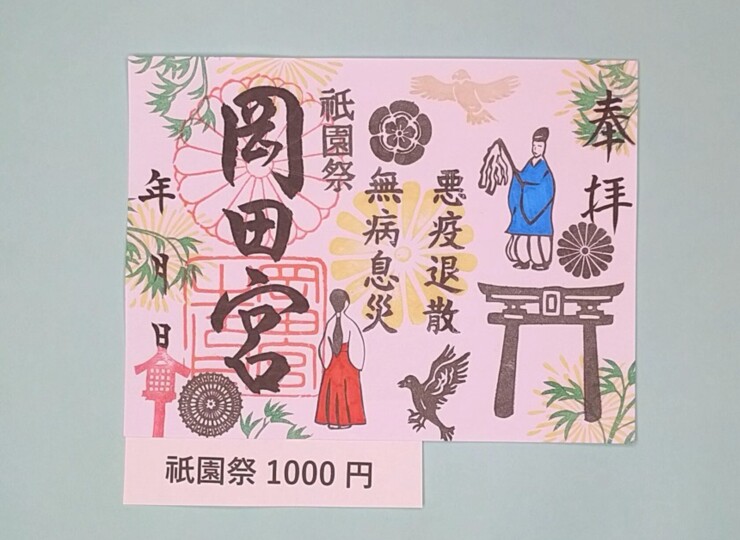 奉拝
悪疫退散
無病息災
祇園祭
岡田宮
年
月
日
祇園祭 1000 円